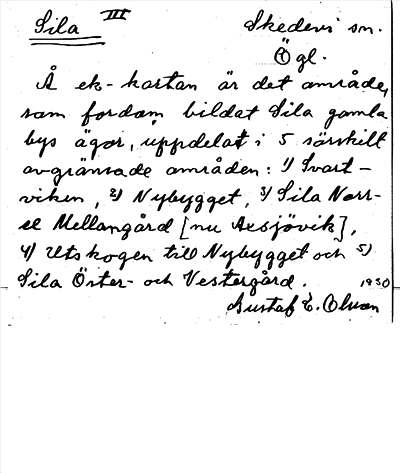 Sila III
Skedevi sn.
Ögl.
Å ek-kartan är det område,
som fordom bildat Sila gamla
bys ägor, uppdelat i 5 särskilt
avgränsade områden: 1) Svart-
viken, 2) Nybygget, 3) Sila Norr-
el Mellangård [nu Axsjövik],
4) Utskogen till Nybygget och 5)
Sila Öster- och Vestergård.
1930
Gustaf E. Olson